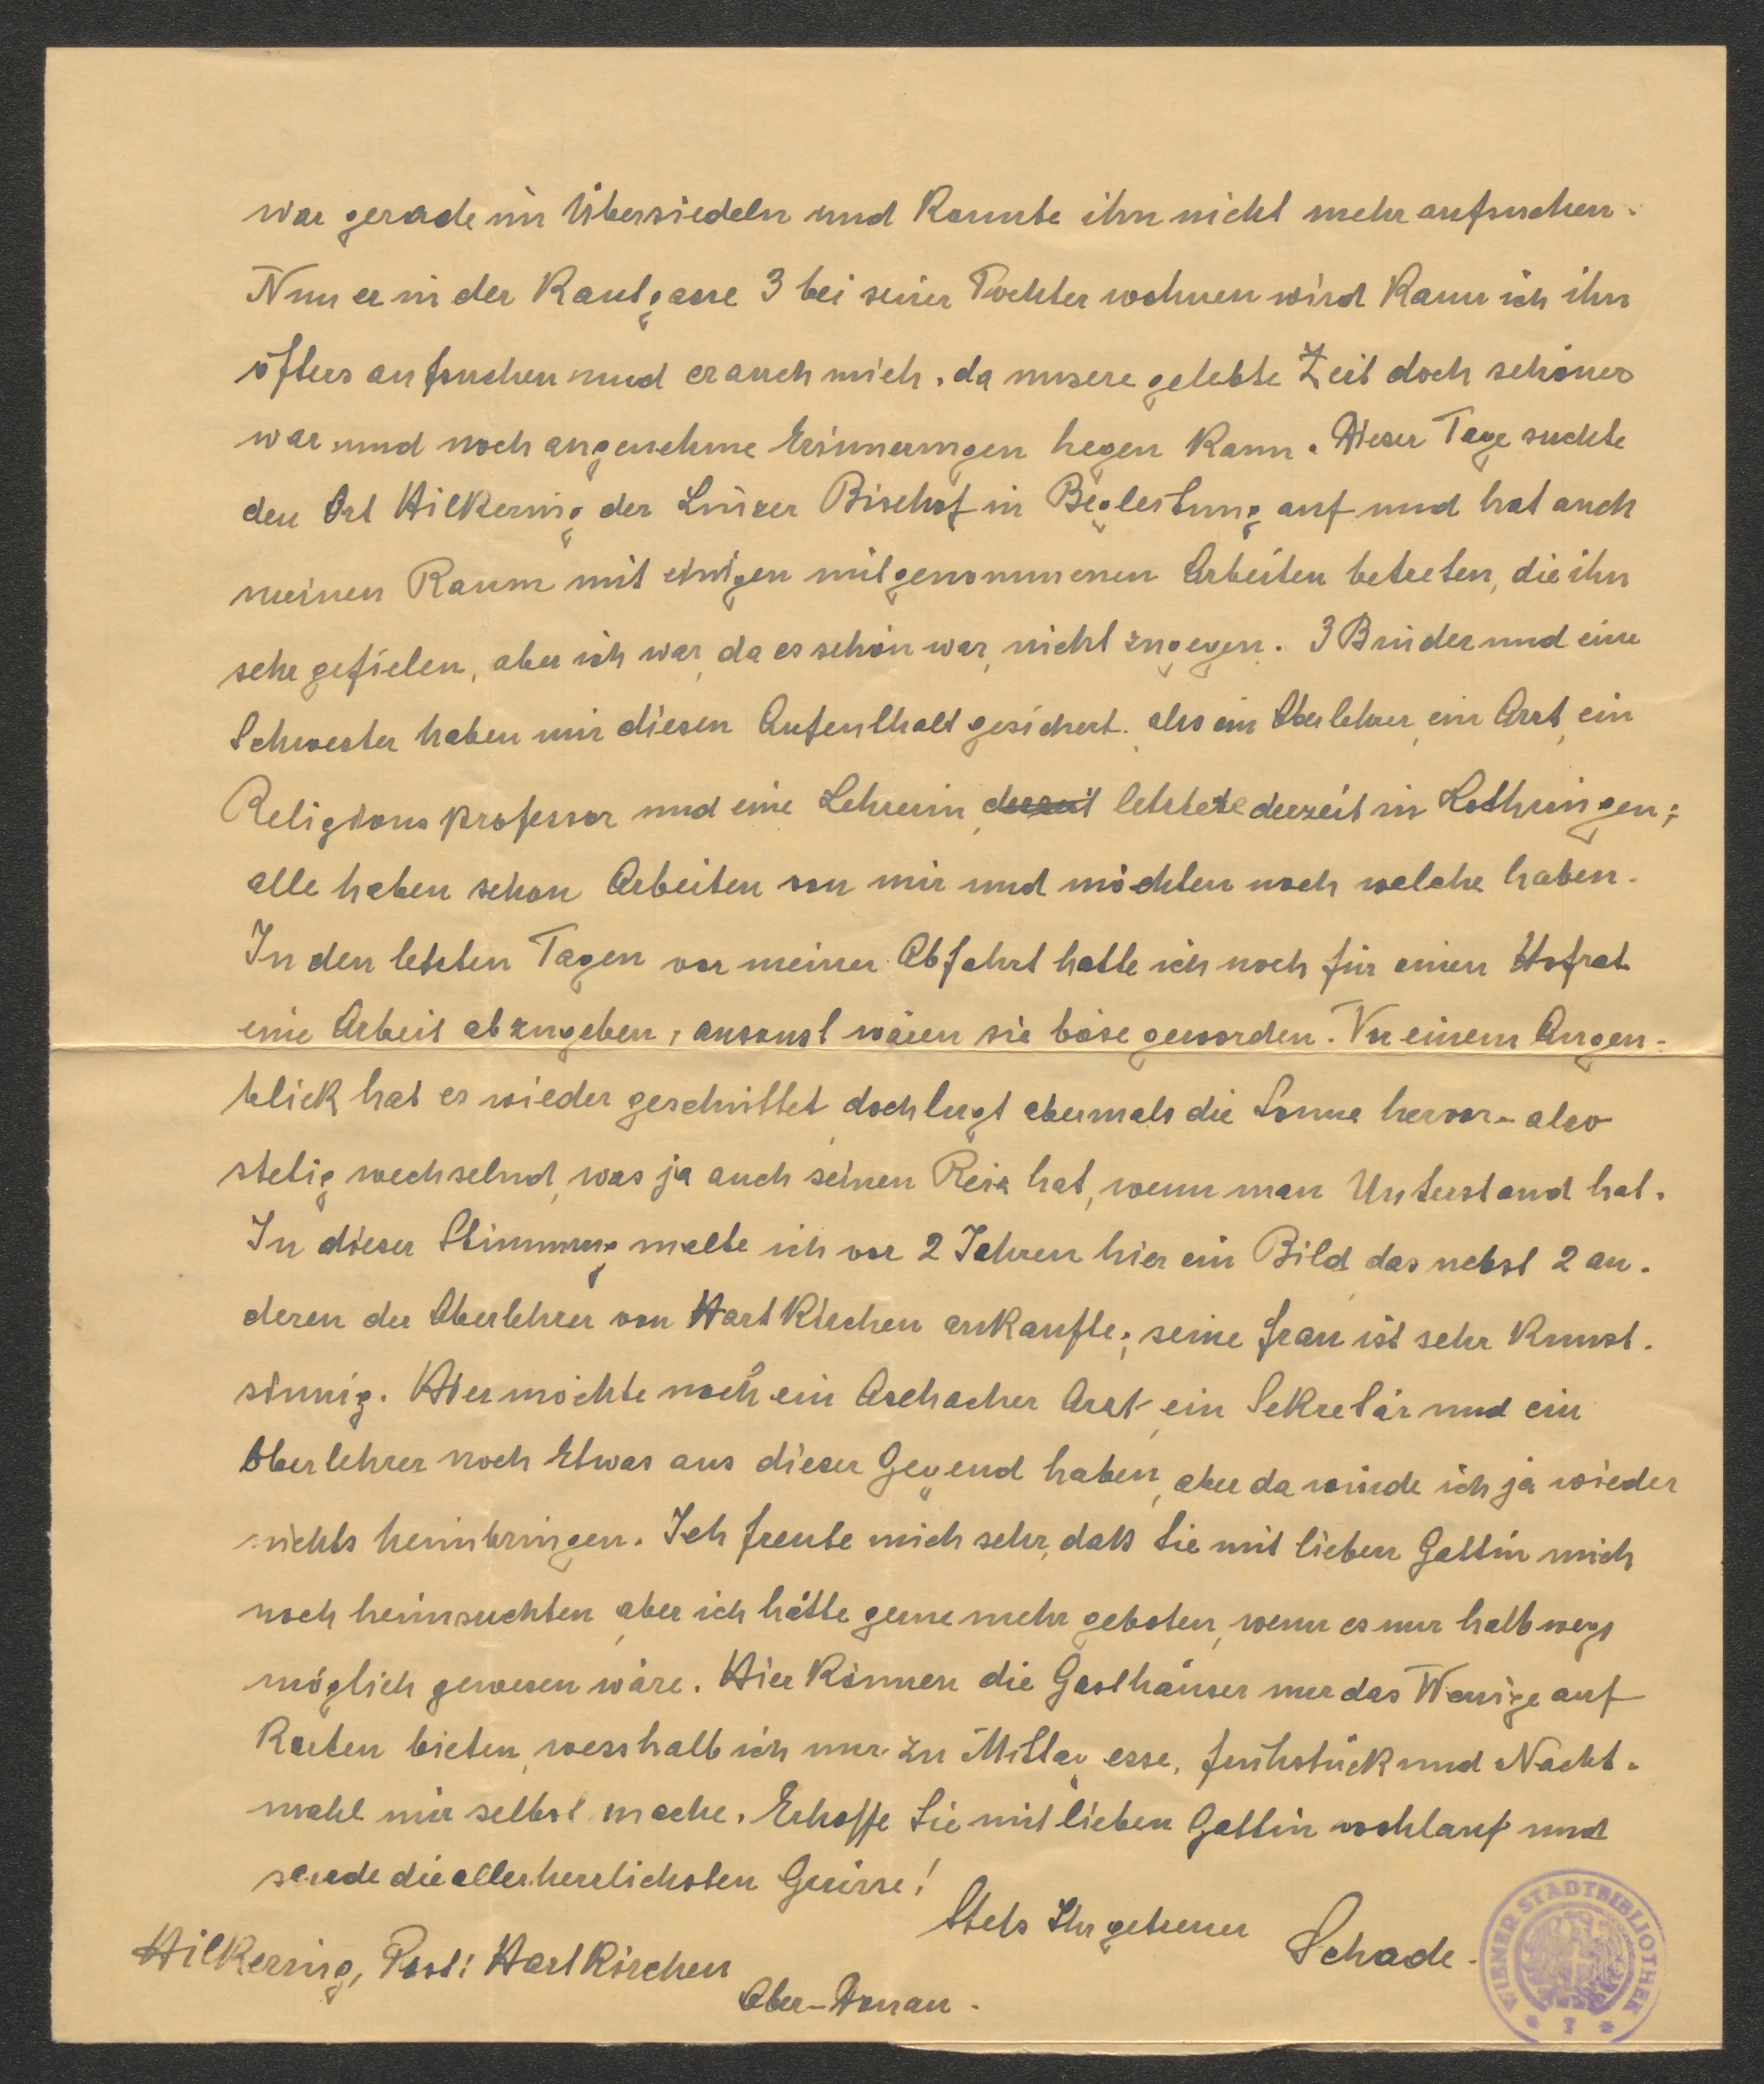 war gerade im Übersiedeln und konnte ihn nicht mehr aufsuchen.
Nun er in der Kantgasse 3 bei seiner Tochter wohnen wird kann ich ihn
öfters aufsuchen und er auch mich, da unsere gelebte Zeit doch schöner
war und noch angenehme Erinnerungen hegen kann. Dieser Tage suchte
den Ort Hilkering der Linzer Bischof in Begleitung auf und hat auch
meinen Raum mit einigen mitgenommenen Arbeiten betreten, die ihn
sehr gefielen, aber ich war, da es schön war, nicht zugegen. 3 Brüder und eine
Schwester haben mir diesen Aufenthalt gesichert. also ein Oberlehrer, ein Arzt, ein
Religionsprofessor und eine Lehrerin, derzeit letztere derzeit in Lothringen;
alle haben schon Arbeiten von mir und möchten noch welche haben.
In den letzten Tagen vor meiner Abfahrt hatte ich noch für einen Hofrat
eine Arbeit abzugeben, ansonst wären sie böse geworden. Vor einem Augen-
blick hat es wieder geschüttet, doch lugt abermals die Sonne hervor - also
stetig wechselnd, was ja auch seinen Reiz hat, wenn man Unterstand hat.
In dieser Stimmung malte ich vor 2 Jahren hier ein Bild, das nebst 2 an-
deren der Oberlehrer von Hartkirchen ankaufte; seine Frau ist sehr kunst-
sinnig. Hier möchte noch ein Aschacher Arzt, ein Sekretär und ein
Oberlehrer noch Etwas aus dieser Gegend haben, aber da würde ich ja wieder
nichts heimbringen. Ich freute mich sehr, daß Sie mit lieben Gattin mich
noch heimsuchten, aber ich hätte gerne mehr geboten, wenn es nur halbwegs
möglich gewesen wäre. Hier können die Gasthäuser nur das Wenige auf
Karten bieten, wesshalb ich nur zu Mittag esse, Frühstück und Nacht-
mahl mir selbst mache. Erhoffe Sie mit lieben Gattin wohlauf und
sende die allerherzlichsten Grüsse!
Stets Ihr getreuer Schade.
Hilkering, Post: Hartkirchen
Ober-Donau.
WIENER STADTBIBLIOTHEK